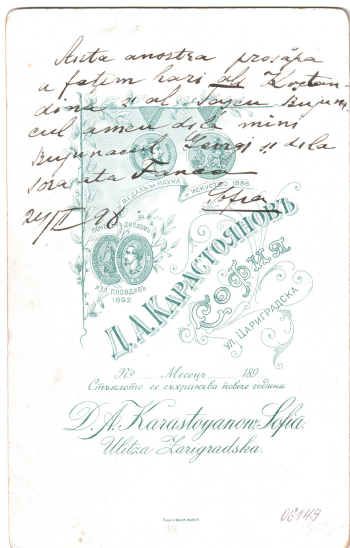 Aista anostra prosăpa
a fațim hari ali Costan-
dina și al
cul ameu dila mini
Georgi și dila
sora ata Fanca
Sofia
24/II 98
МЕДАЛЪ ЗА НАУКА И ИСКУСТВО 1886.
ПОЧЕТЕНЪ ДИПЛОМЪ
ИЗЛ. ПЛОВДИВЪ
1892.
Д.А.КАРАСТОЯНОВЪ
СОФИЯ
УЛ. ЦАРИГРАДСКА
No Месецъ 189
Стъклото се съхранява повече години
D. A. Karastoyanow, Sofia.
Ulitza Zarigradska.
06149